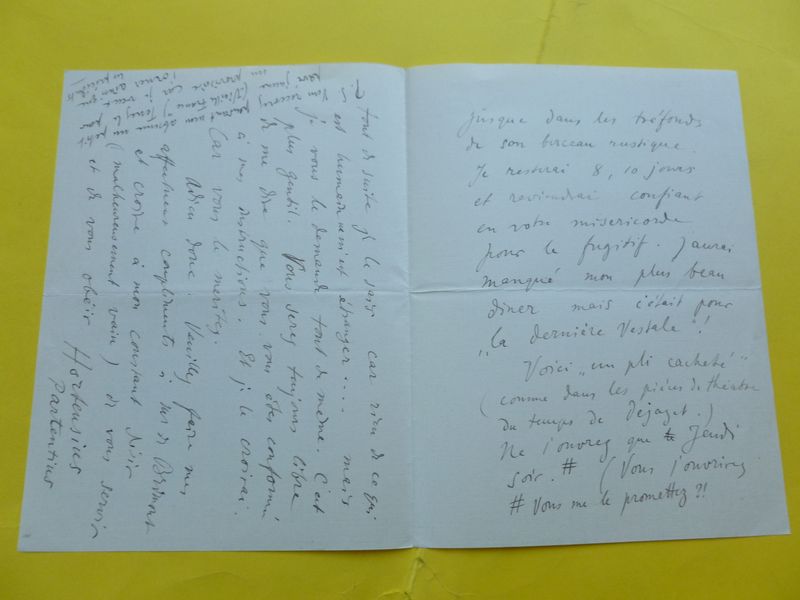 jusque dans les tréfonds
de son bureau rustique.
Je resterai 8, 10 jours
et reviendrai confiant
en votre miséricorde
pour le fugitif. J'aurai
manqué mon plus beau
dîner mais c'était pour
"la dernière Vestale"!
Voici "un pli cacheté"
(comme dans les pièces de théâtre
du temps de Déjazet.)
Ne l'ouvrez que Jeudi
soir. # (Vous l'ouvrirez
# Vous me le promettez ?!
→ tout de suite je le sais car rien de ce qui
est humain ne m'est étranger.... mais
je vous le demande tout de même. C'est
plus gentil. Vous serez toujours libre
de me dire que vous vous êtes conformé
à mes instructions. Et je le croirai.
Car vous le méritez.
Adieu donc. Veuillez faire mes
affectueux compliments à
et croire à mon constant désir
(malheureusement vain) de vous servir
et de vous obéir
Hortensius
Partentius